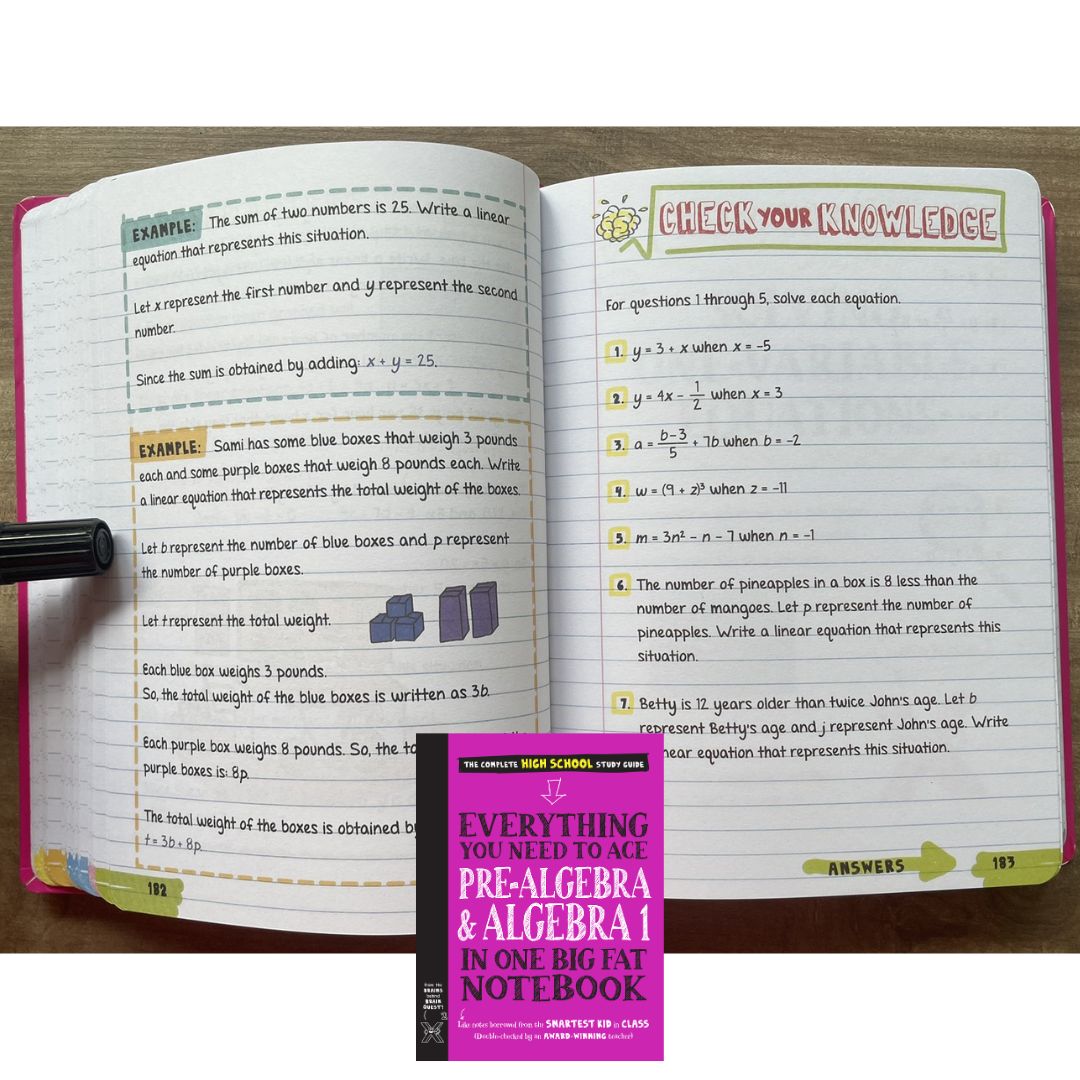 EXAMPLE: The sum of two numbers is 25. Write a linear
equation that represents this situation.
Let x represent the first number and y represent the second
number.
Since the sum is obtained by adding: x + y = 25.
EXAMPLE: Sami has some blue boxes that weigh 3 pounds
each and some purple boxes that weigh 8 pounds each. Write
a linear equation that represents the total weight of the boxes.
Let b represent the number of blue boxes and p represent
the number of purple boxes.
Let t represent the total weight.
Each blue box weighs 3 pounds.
So, the total weight of the blue boxes is written as 3b.
Each purple box weighs 8 pounds. So, the
purple boxes is: 8p.
The total weight of the boxes is obtained
t = 3b + 8p.
182
CHECK YOUR KNOWLEDGE
For questions 1 through 5, solve each equation.
1. y = 3 + x when x = -5
2. y = 4x - 1/2 when x = 3
3. a = b-3/5 + 7b when b = -2
4. w = (9 + z)³ when z = -11
5. m = 3n² - n - 7 when n = -1
6. The number of pineapples in a box is 8 less than the
number of mangoes. Let p represent the number of
pineapples. Write a linear equation that represents this
situation.
7. Betty is 12 years older than twice John's age. Let b
represent Betty's age and j represent John's age. Write
equation that represents this situation.
ANSWERS 183
THE COMPLETE HIGH SCHOOL STUDY GUIDE
EVERYTHING
YOU NEED TO ACE
PRE-ALGEBRA
& ALGEBRA 1
IN ONE BIG FAT
NOTEBOOK
from the
BRAINS
behind
BRAIN
QUEST
Like notes borrowed from the SMARTEST KID in CLASS
(Double-checked by an AWARD-WINNING teacher)